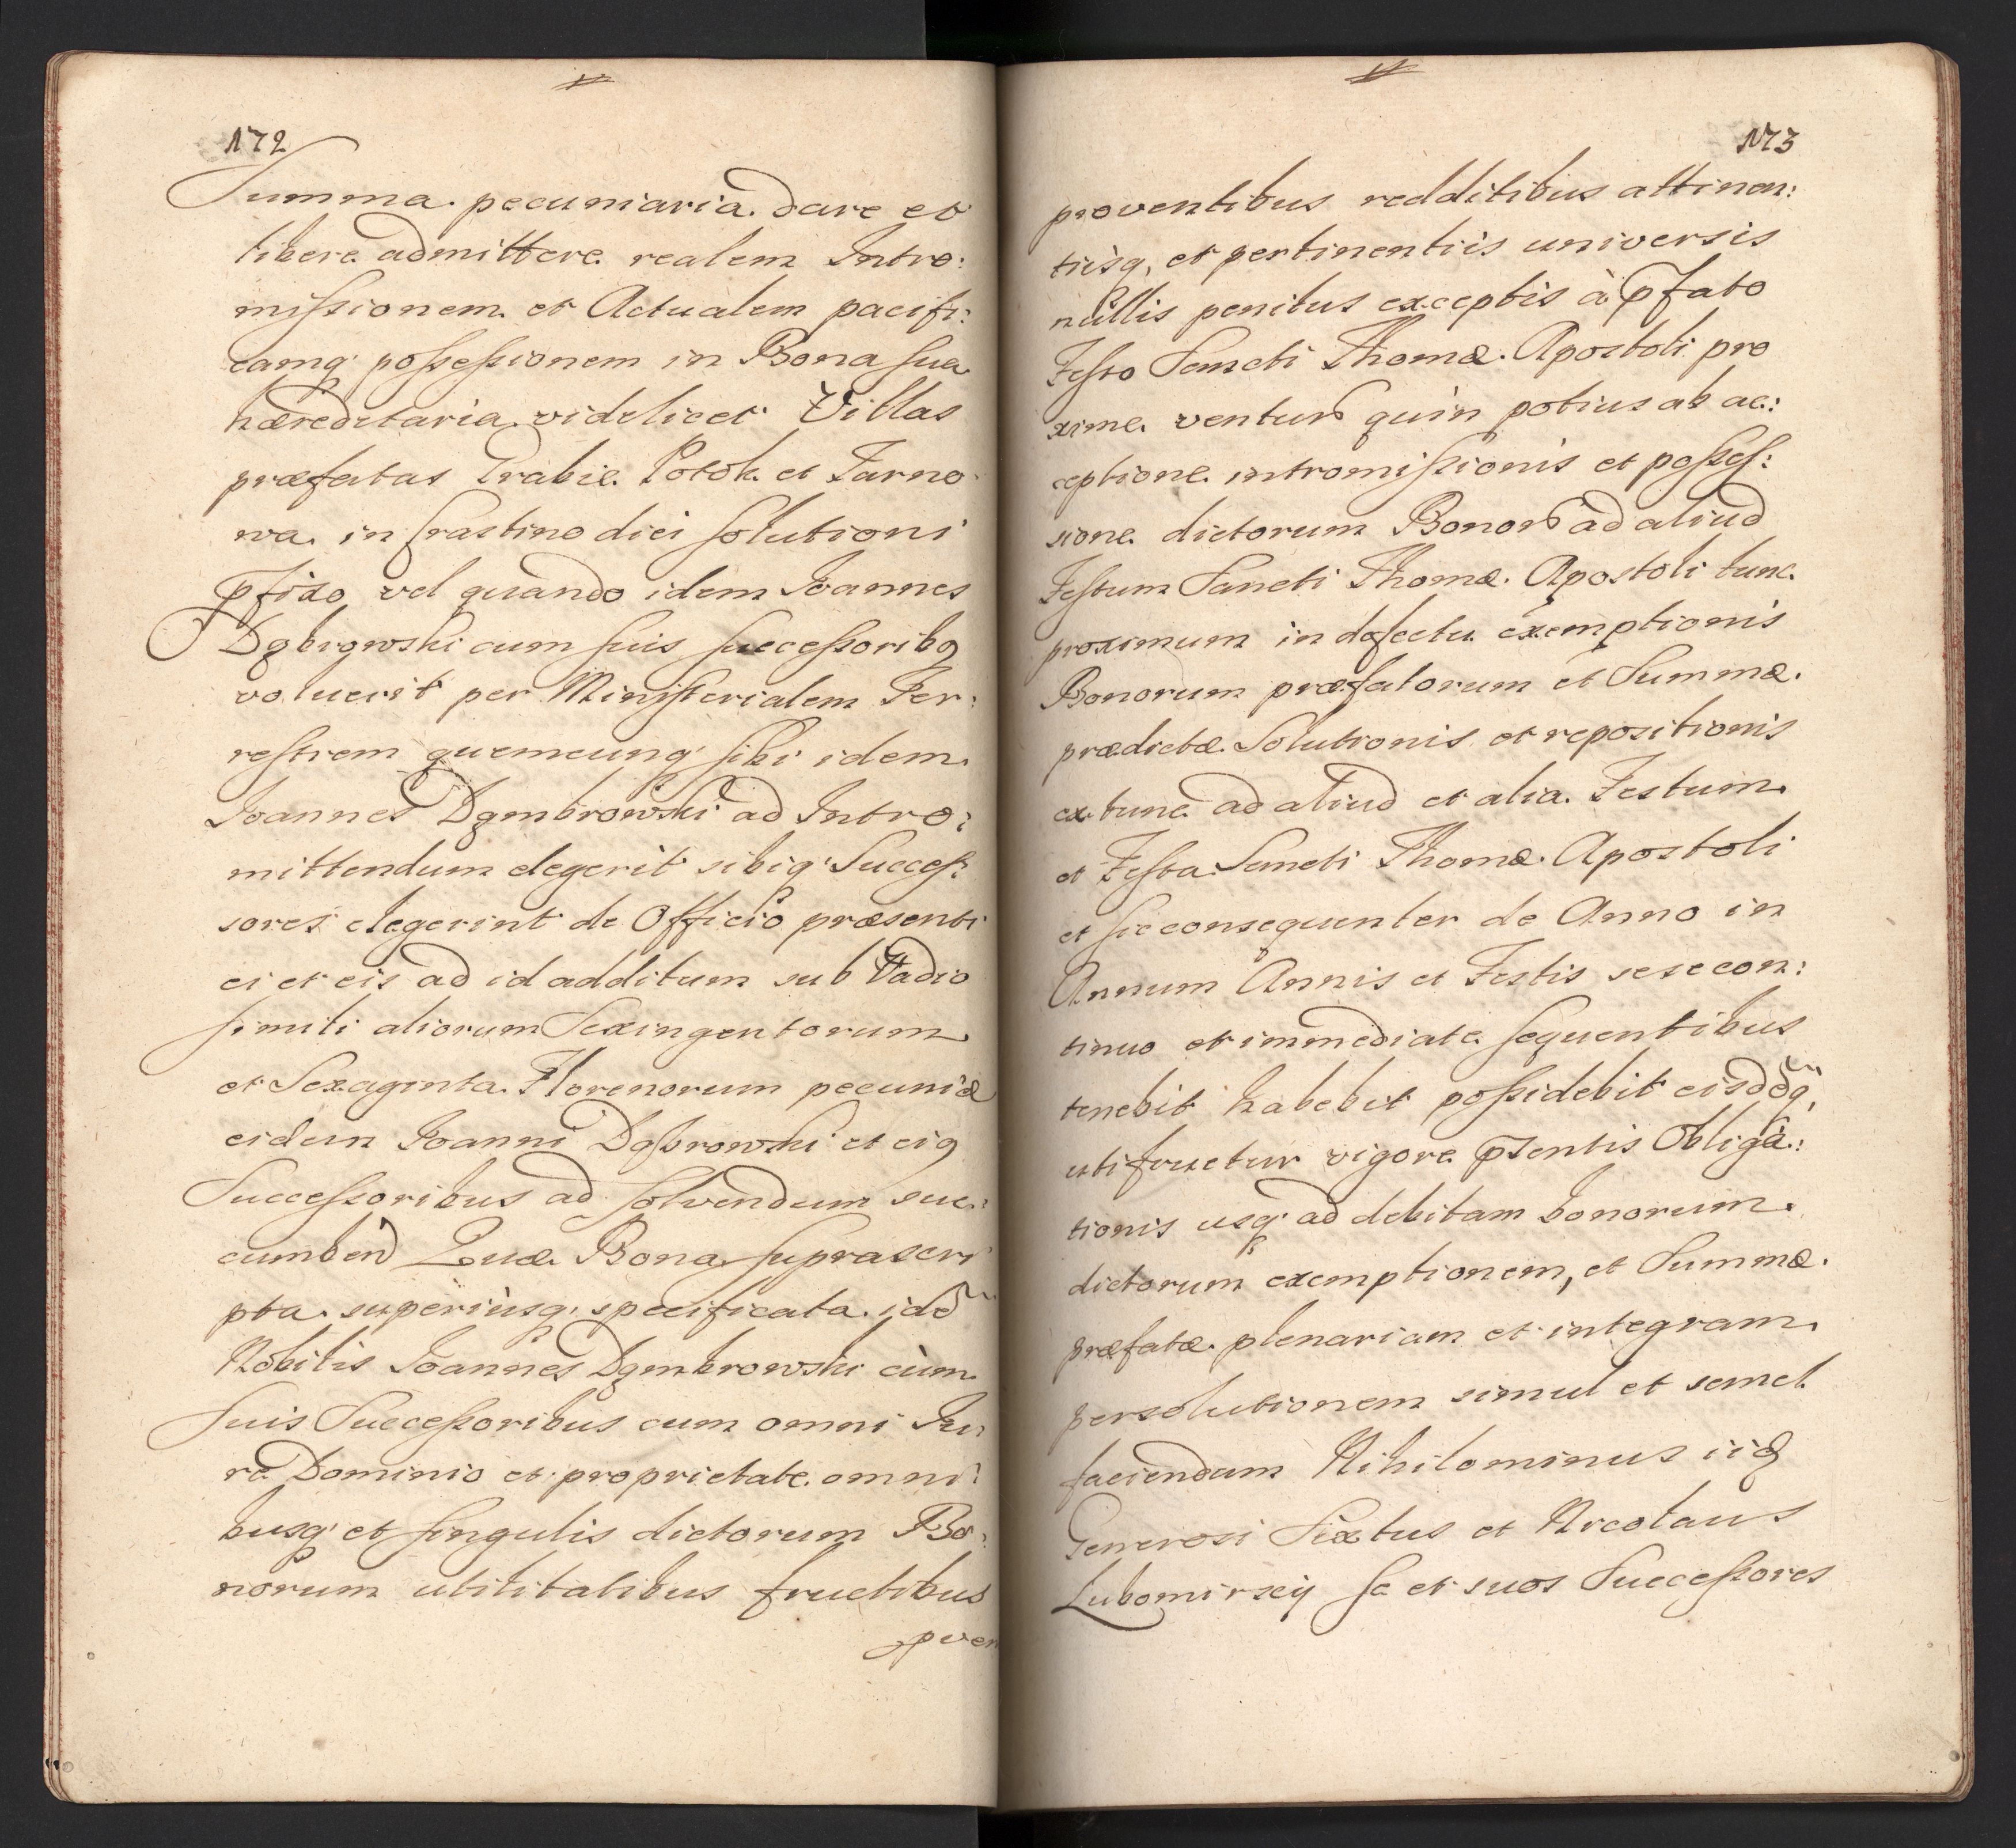 172
Summa pecuniaria dare et
libere admittere realem Intro:
mißionem et Actualem pacifi:
camq poßeßionem in Bona sua
hæreditaria videlicet Villas
præfatas Grabie Potok et Tarno
wa in Crastino diei solutioni
pfixo vel quando idem Joannes
Dąbrowski cum suis succeßoribq
voluerit per Ministerialem Ter:
restrem quemcunq sibi idem
Joannes Dąmbrowski ad Intro:
mittendum elegerit sibiq Succeß:
sores elegerint de Officio præsenti
ei et eis ad id additum sub Vadio
simili aliorum Sexingentorum
et Sexaginta Florenorum pecuniæ
eidem Joanni Dąbrowski et eiq
Succeßoribus ad solvendum suc:
cumben Quæ Bona suprascri
pta superiusq specificata idẽ
Nobilis Joannes Dąmbrowski cum
Suis Succeßoribus cum omni Ju:
re Dominio et proprietate omni:
busq et singulis dictorum Bo:
norum utilitatibus fructibus
pven
173
proventibus redditibus attinen:
tiisq, et pertinentiis universis
nullis penitus exceptis à pfato
Festo Sancti Thomæ Apostoli pro
xime ventur quin potius ab ac:
ceptione intromißionis et poßeß:
sione dictorum Bonor ad aliud
Festum Sancti Thomæ Apostoli tunc
proximum in defectu exemptionis
Bonorum præfatorum et Summæ
prædictæ Solutionis et repositionis
ex tunc ad aliud et alia Festum
et Festa Sancti Thomæ Apostoli
et sic consequenter de Anno in
Annum Annis et Festis sese con:
tinuo et immediate sequentibus
tenebit habebit poßidebit eisdẽq,
utifruetur vigore psentis Obliga:
tionis usq ad debitam bonorum
dictorum exemptionem, et Summæ
præfatæ plenariam et integram
persolutionem simul et semel
faciendam Nihilominus iid
Generosi Sixtus et Nicolaus
Lubomirscÿ se et suos Succeßores